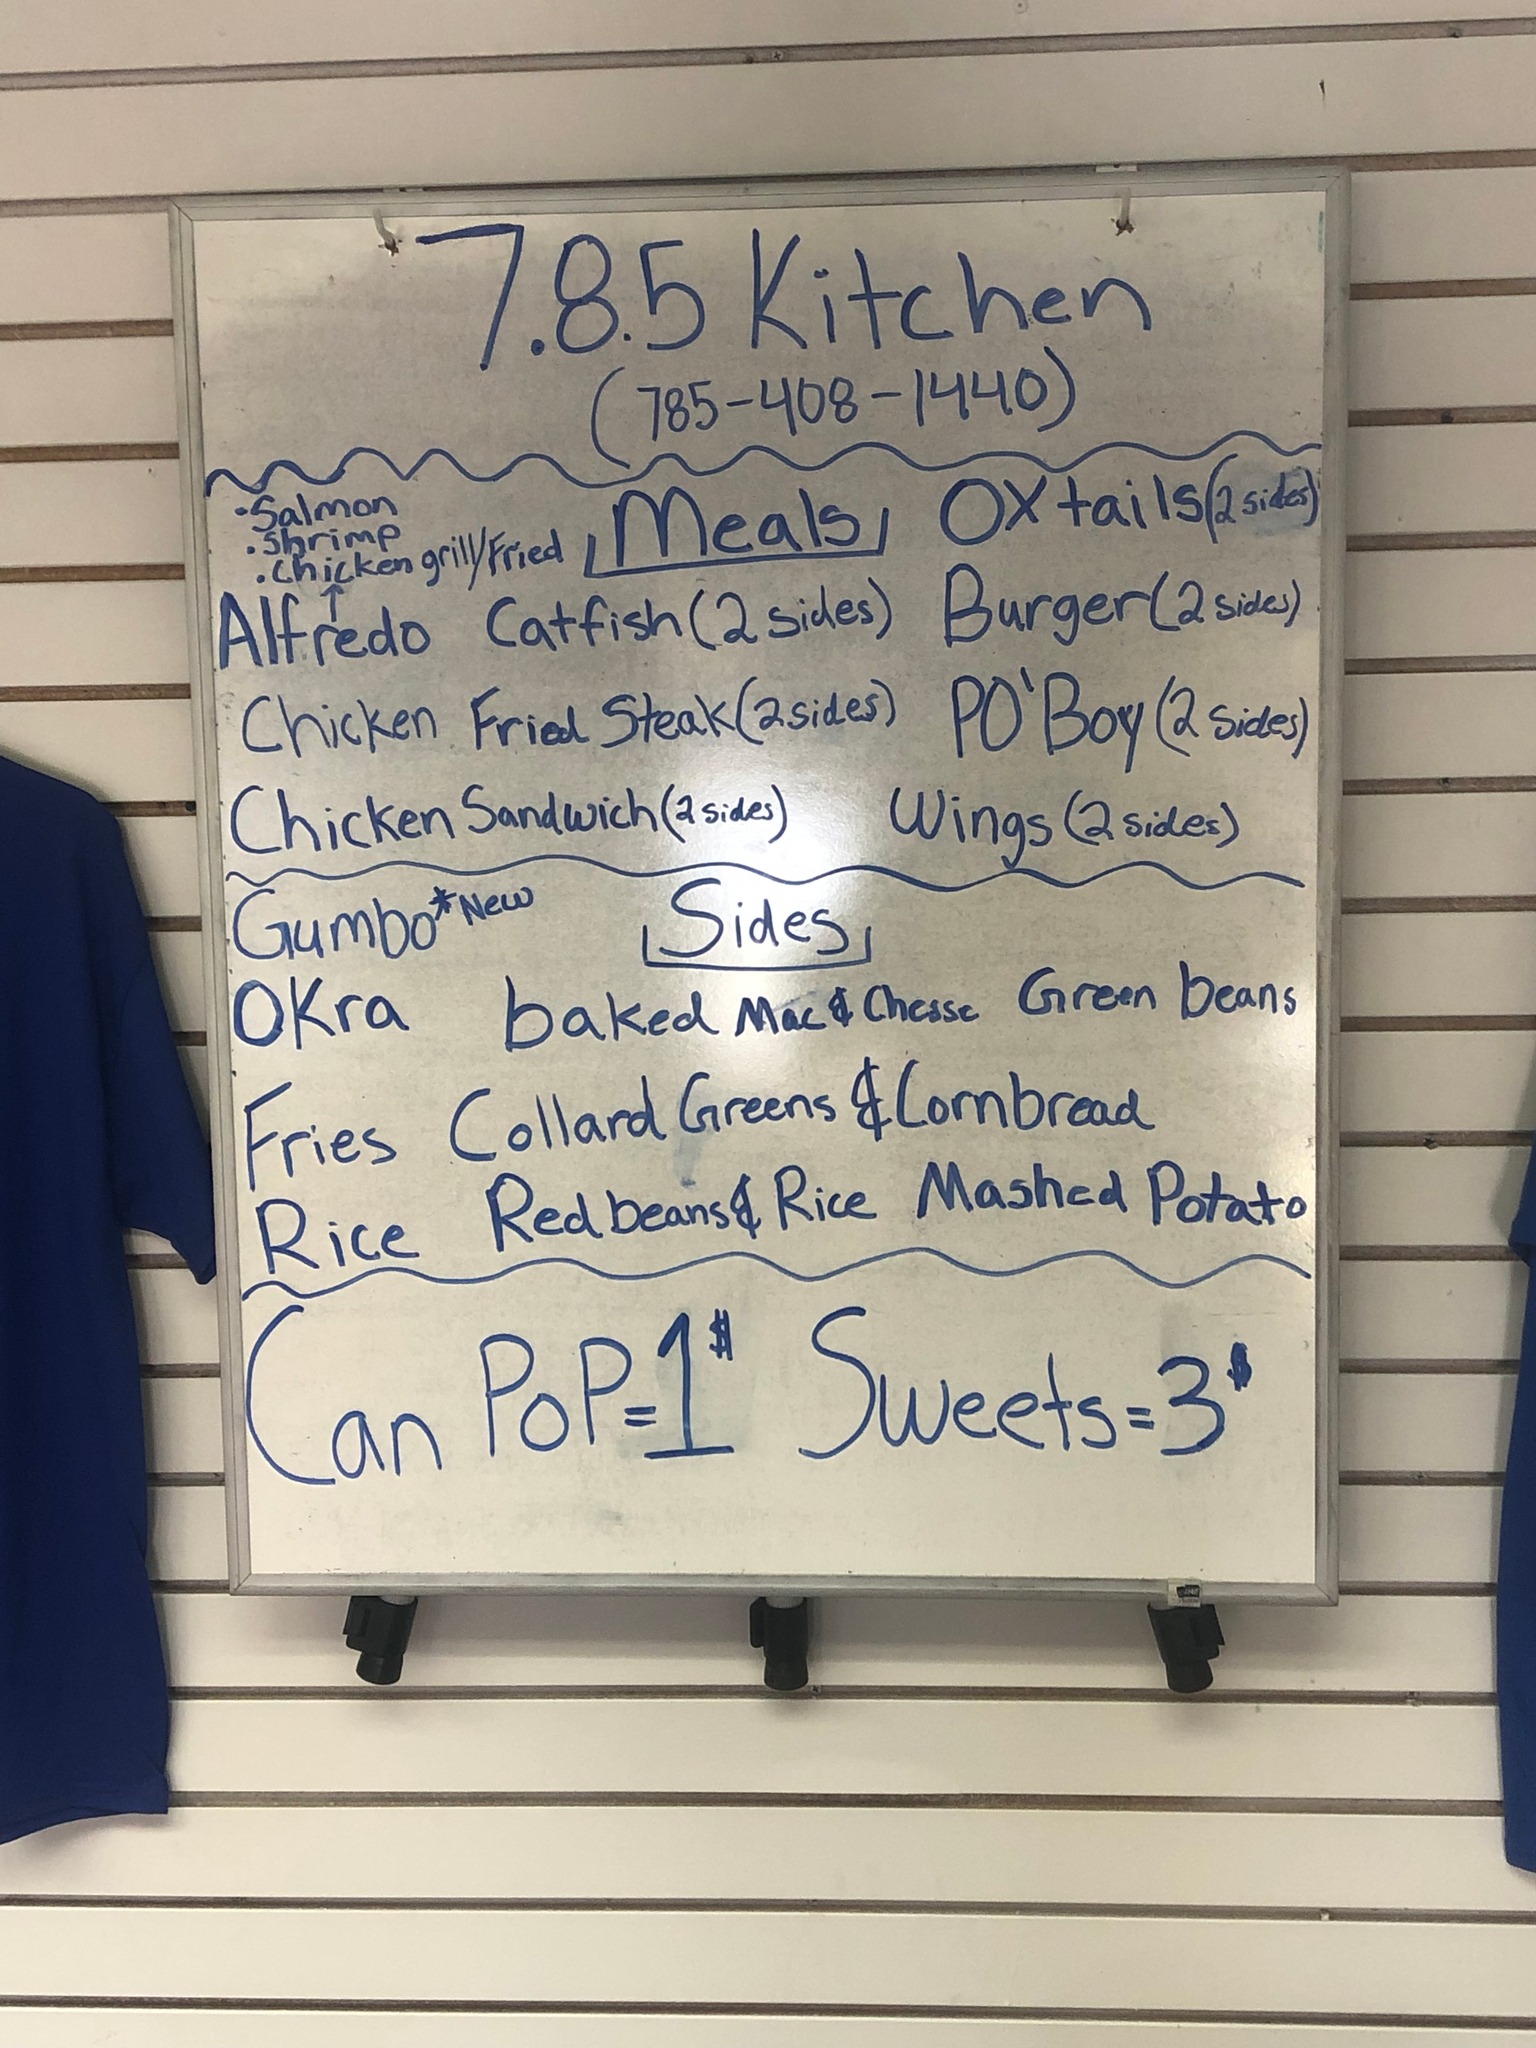 7.8.5 Kitchen
(785-408-1440)
•Salmon
•Shrimp
•Chicken grill/Fried
Meals
Oxtails (2 sides)
Alfredo Catfish (2 sides) Burger (2 sides)
Chicken Fried Steak (2 sides) PO'Boy (2 sides)
Chicken Sandwich (2 sides) Wings (2 sides)
Gumbo *New
Sides
OKra baked Mac & Chesse Green beans
Fries Collard Greens & Cornbread
Rice Red beans & Rice Mashed Potato
Can PoP=1$ Sweets=3$